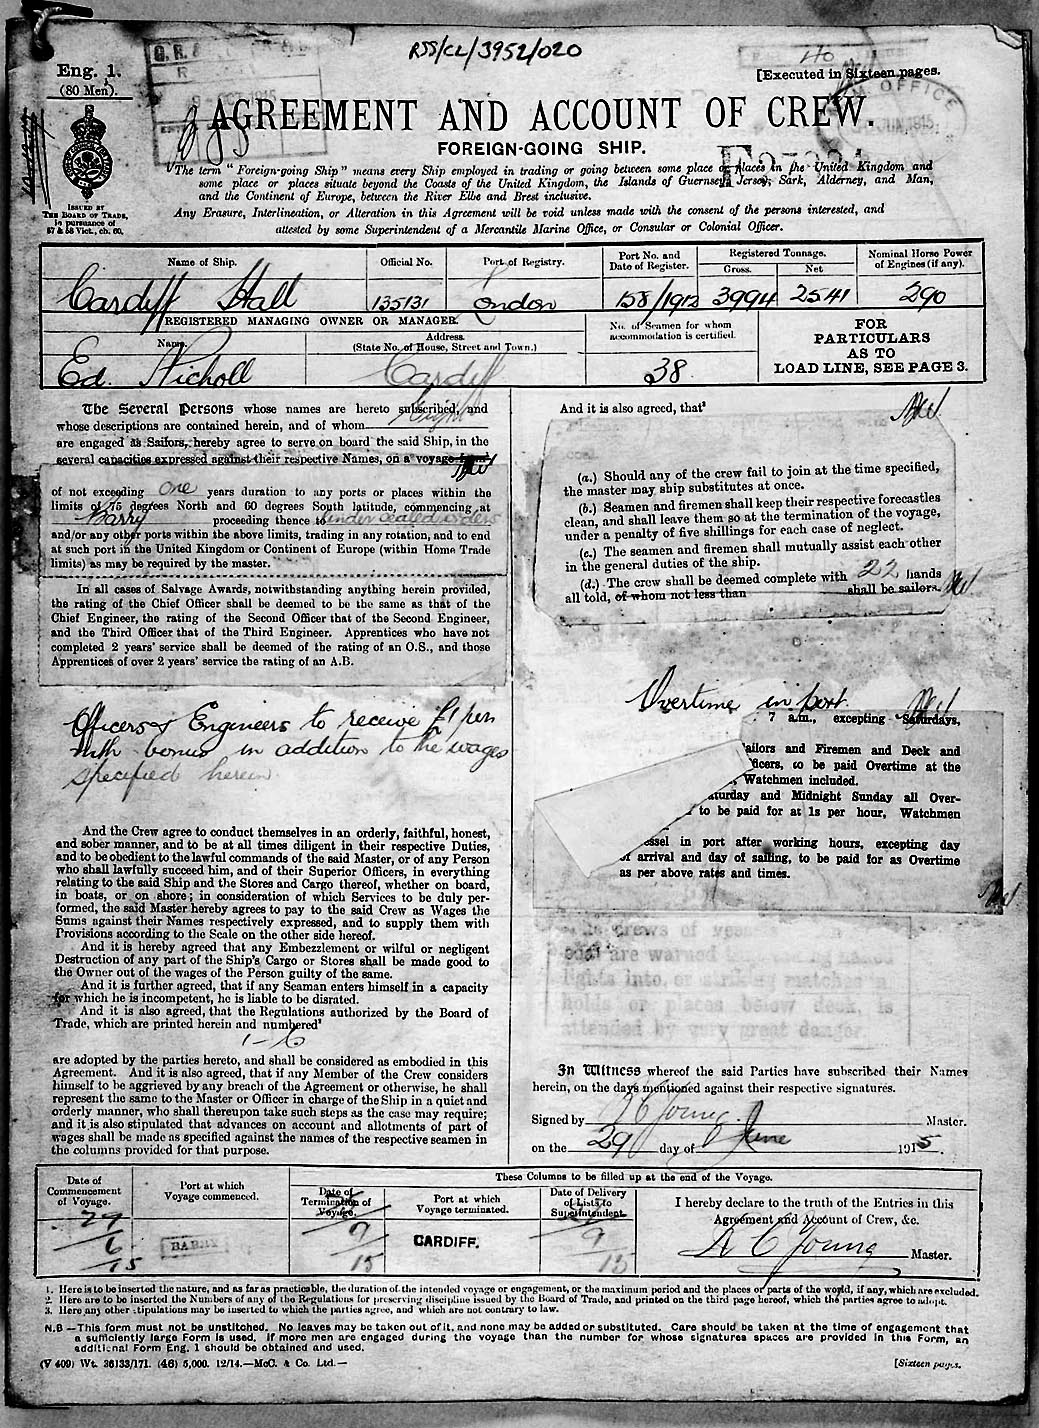 RSS/CL/3952/020
Eng. 1.
(80 Men).
[Executed in Sixteen pages.
AGREEMENT AND ACCOUNT OF CREW.
FOREIGN-GOING SHIP.
ISSUED BY
THE BOARD OF TRADE,
in pursuance of
57 & 58 Vict., ch. 60.
The term "Foreign-going Ship" means every Ship employed in trading or going between some place or places in the United Kingdom and
some place or places situate beyond the Coasts of the United Kingdom, the Islands of Guernsey, Jersey, Sark, Alderney, and Man,
and the Continent of Europe, between the River Elbe and Brest inclusive.
Any Erasure, Interlineation, or Alteration in this Agreement will be void unless made with the consent of the persons interested, and
attested by some Superintendent of a Mercantile Marine Office, or Consular or Colonial Officer.
Name of Ship. Official No. Port of Registry. Port No. and Date of Register. Registered Tonnage. Gross. Net Nominal Horse Power of Engines (if any).
Cardiff Hall 135131 London 158/1912 3994 2541 290
REGISTERED MANAGING OWNER OR MANAGER.
Name. Address. (State No. of House, Street and Town.)
No. of Seamen for whom accommodation is certified.
Ed. Nicholl Cardiff 38
FOR
PARTICULARS
AS TO
LOAD LINE, SEE PAGE 3.
The Several Persons whose names are hereto subscribed, and
whose descriptions are contained herein, and of whom Eight
are engaged as Sailors, hereby agree to serve on board the said Ship, in the
several capacities expressed against their respective Names, on a voyage from
of not exceeding One years duration to any ports or places within the
limits of 75 degrees North and 60 degrees South latitude, commencing at
Barry proceeding thence to under sealed orders
and/or any other ports within the above limits, trading in any rotation, and to end
at such port in the United Kingdom or Continent of Europe (within Home Trade
limits) as may be required by the master.
In all cases of Salvage Awards, notwithstanding anything herein provided,
the rating of the Chief Officer shall be deemed to be the same as that of the
Chief Engineer, the rating of the Second Officer that of the Second Engineer,
and the Third Officer that of the Third Engineer. Apprentices who have not
completed 2 years' service shall be deemed of the rating of an O.S., and those
Apprentices of over 2 years' service the rating of an A.B.
Officers & Engineers to receive £1 per
mth bonus in addition to the wages
specified herein
And the Crew agree to conduct themselves in an orderly, faithful, honest,
and sober manner, and to be at all times diligent in their respective Duties,
and to be obedient to the lawful commands of the said Master, or of any Person
who shall lawfully succeed him, and of their Superior Officers, in everything
relating to the said Ship and the Stores and Cargo thereof, whether on board,
in boats, or on shore; in consideration of which Services to be duly per-
formed, the said Master hereby agrees to pay to the said Crew as Wages the
Sums against their Names respectively expressed, and to supply them with
Provisions according to the Scale on the other side hereof.
And it is hereby agreed that any Embezzlement or wilful or negligent
Destruction of any part of the Ship's Cargo or Stores shall be made good to
the Owner out of the wages of the Person guilty of the same.
And it is further agreed, that if any Seaman enters himself in a capacity
for which he is incompetent, he is liable to be disrated.
And it is also agreed, that the Regulations authorized by the Board of
Trade, which are printed herein and numbered²
1-6
are adopted by the parties hereto, and shall be considered as embodied in this
Agreement. And it is also agreed, that if any Member of the Crew considers
himself to be aggrieved by any breach of the Agreement or otherwise, he shall
represent the same to the Master or Officer in charge of the Ship in a quiet and
orderly manner, who shall thereupon take such steps as the case may require;
and it is also stipulated that advances on account and allotments of part of
wages shall be made as specified against the names of the respective seamen in
the columns provided for that purpose.
And it is also agreed, that³
(a.) Should any of the crew fail to join at the time specified,
the master may ship substitutes at once.
(b.) Seamen and firemen shall keep their respective forecastles
clean, and shall leave them so at the termination of the voyage,
under a penalty of five shillings for each case of neglect.
(c.) The seamen and firemen shall mutually assist each other
in the general duties of the ship.
(d.) The crew shall be deemed complete with 22 hands
all told, of whom not less than shall be sailors.
Overtime in port.
7 a.m., excepting Saturdays,
ailors and Firemen and Deck and
ficers, to be paid Overtime at the
Watchmen included.
aturday and Midnight Sunday all Over-
to be paid for at 1s per hour, Watchmen
essel in port after working hours, excepting day
of arrival and day of sailing, to be paid for as Overtime
as per above rates and times.
crews of vessels
coal are warned naked
lights into, or striking matches in
holds or places below deck, is
attended by very great danger.
In Witness whereof the said Parties have subscribed their Names
herein, on the days mentioned against their respective signatures.
Signed by A C Young Master.
on the 29 day of June 1915.
These Columns to be filled up at the end of the Voyage.
Date of Commencement of Voyage. Port at which Voyage commenced. Date of Termination of Voyage. Port at which Voyage terminated. Date of Delivery of Lists to Superintendent.
I hereby declare to the truth of the Entries in this
Agreement and Account of Crew, &c.
29/6/15 BARRY 9/15 CARDIFF. 9/15
A C Young Master.
1. Here is to be inserted the nature, and as far as practicable, the duration of the intended voyage or engagement, or the maximum period and the places or parts of the world, if any, which are excluded.
2. Here are to be inserted the Numbers of any of the Regulations for preserving discipline issued by the Board of Trade, and printed on the third page hereof, which the parties agree to adopt.
3. Here any other stipulations may be inserted to which the parties agree, and which are not contrary to law.
N.B—This form must not be unstitched. No leaves may be taken out of it, and none may be added or substituted. Care should be taken at the time of engagement that
a sufficiently large Form is used. If more men are engaged during the voyage than the number for whose signatures spaces are provided in this Form, an
additional Form Eng. 1 should be obtained and used.
(V 409) Wt. 36133/171. (46) 5,000. 12/14.—McC. & Co. Ltd.—
[Sixteen pages.